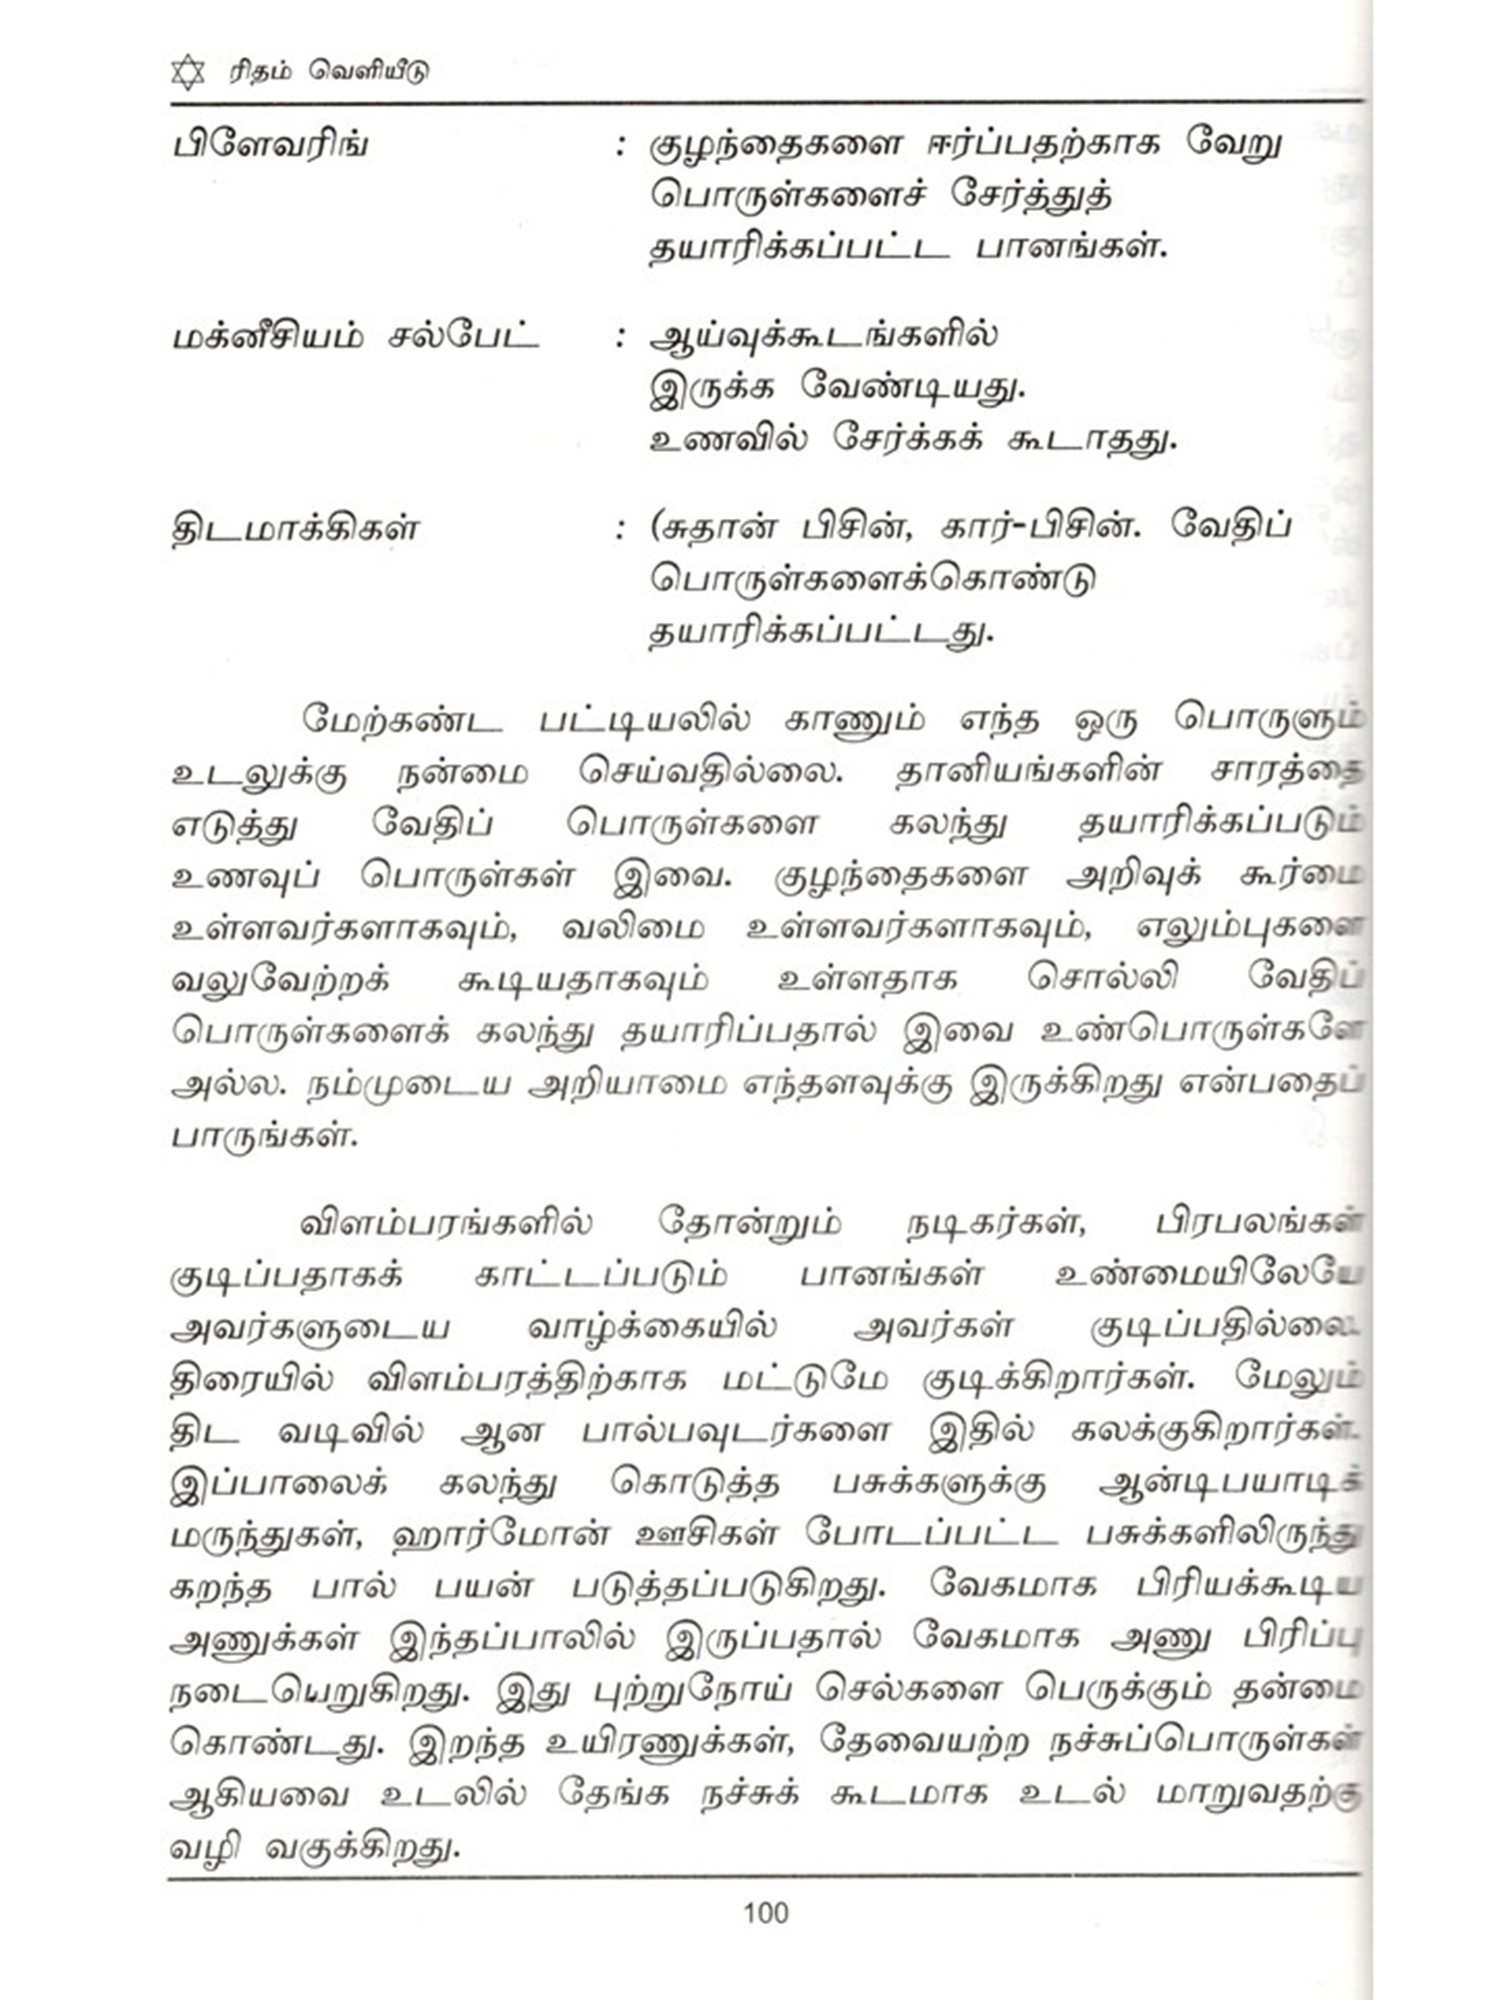 ரிதம் வெளியீடு
பிளேவரிங் : குழந்தைகளை ஈர்ப்பதற்காக வேறு
பொருள்களைச் சேர்த்துத்
தயாரிக்கப்பட்ட பானங்கள்.
மக்னீசியம் சல்பேட் : ஆய்வுக்கூடங்களில்
இருக்க வேண்டியது.
உணவில் சேர்க்கக் கூடாதது.
திடமாக்கிகள் : (சுதான் பிசின், கார்-பிசின். வேதிப்
பொருள்களைக்கொண்டு
தயாரிக்கப்பட்டது.
மேற்கண்ட பட்டியலில் காணும் எந்த ஒரு பொருளும்
உடலுக்கு நன்மை செய்வதில்லை. தானியங்களின் சாரத்தை
எடுத்து வேதிப் பொருள்களை கலந்து தயாரிக்கப்படும்
உணவுப் பொருள்கள் இவை. குழந்தைகளை அறிவுக் கூர்மை
உள்ளவர்களாகவும், வலிமை உள்ளவர்களாகவும், எலும்புகளை
வலுவேற்றக் கூடியதாகவும் உள்ளதாக சொல்லி வேதிப்
பொருள்களைக் கலந்து தயாரிப்பதால் இவை உண்பொருள்களே
அல்ல. நம்முடைய அறியாமை எந்தளவுக்கு இருக்கிறது என்பதைப்
பாருங்கள்.
விளம்பரங்களில் தோன்றும் நடிகர்கள், பிரபலங்கள்
குடிப்பதாகக் காட்டப்படும் பானங்கள் உண்மையிலேயே
அவர்களுடைய வாழ்க்கையில் அவர்கள் குடிப்பதில்லை.
திரையில் விளம்பரத்திற்காக மட்டுமே குடிக்கிறார்கள். மேலும்
திட வடிவில் ஆன பால்பவுடர்களை இதில் கலக்குகிறார்கள்.
இப்பாலைக் கலந்து கொடுத்த பசுக்களுக்கு ஆன்டிபயாடிக்
மருந்துகள், ஹார்மோன் ஊசிகள் போடப்பட்ட பசுக்களிலிருந்து
கறந்த பால் பயன் படுத்தப்படுகிறது. வேகமாக பிரியக்கூடிய
அணுக்கள் இந்தப்பாலில் இருப்பதால் வேகமாக அணு பிரிப்பு
நடையெறுகிறது. இது புற்றுநோய் செல்களை பெருக்கும் தன்மை
கொண்டது. இறந்த உயிரணுக்கள், தேவையற்ற நச்சுப்பொருள்கள்
ஆகியவை உடலில் தேங்க நச்சுக் கூடமாக உடல் மாறுவதற்கு
வழி வகுக்கிறது.
100